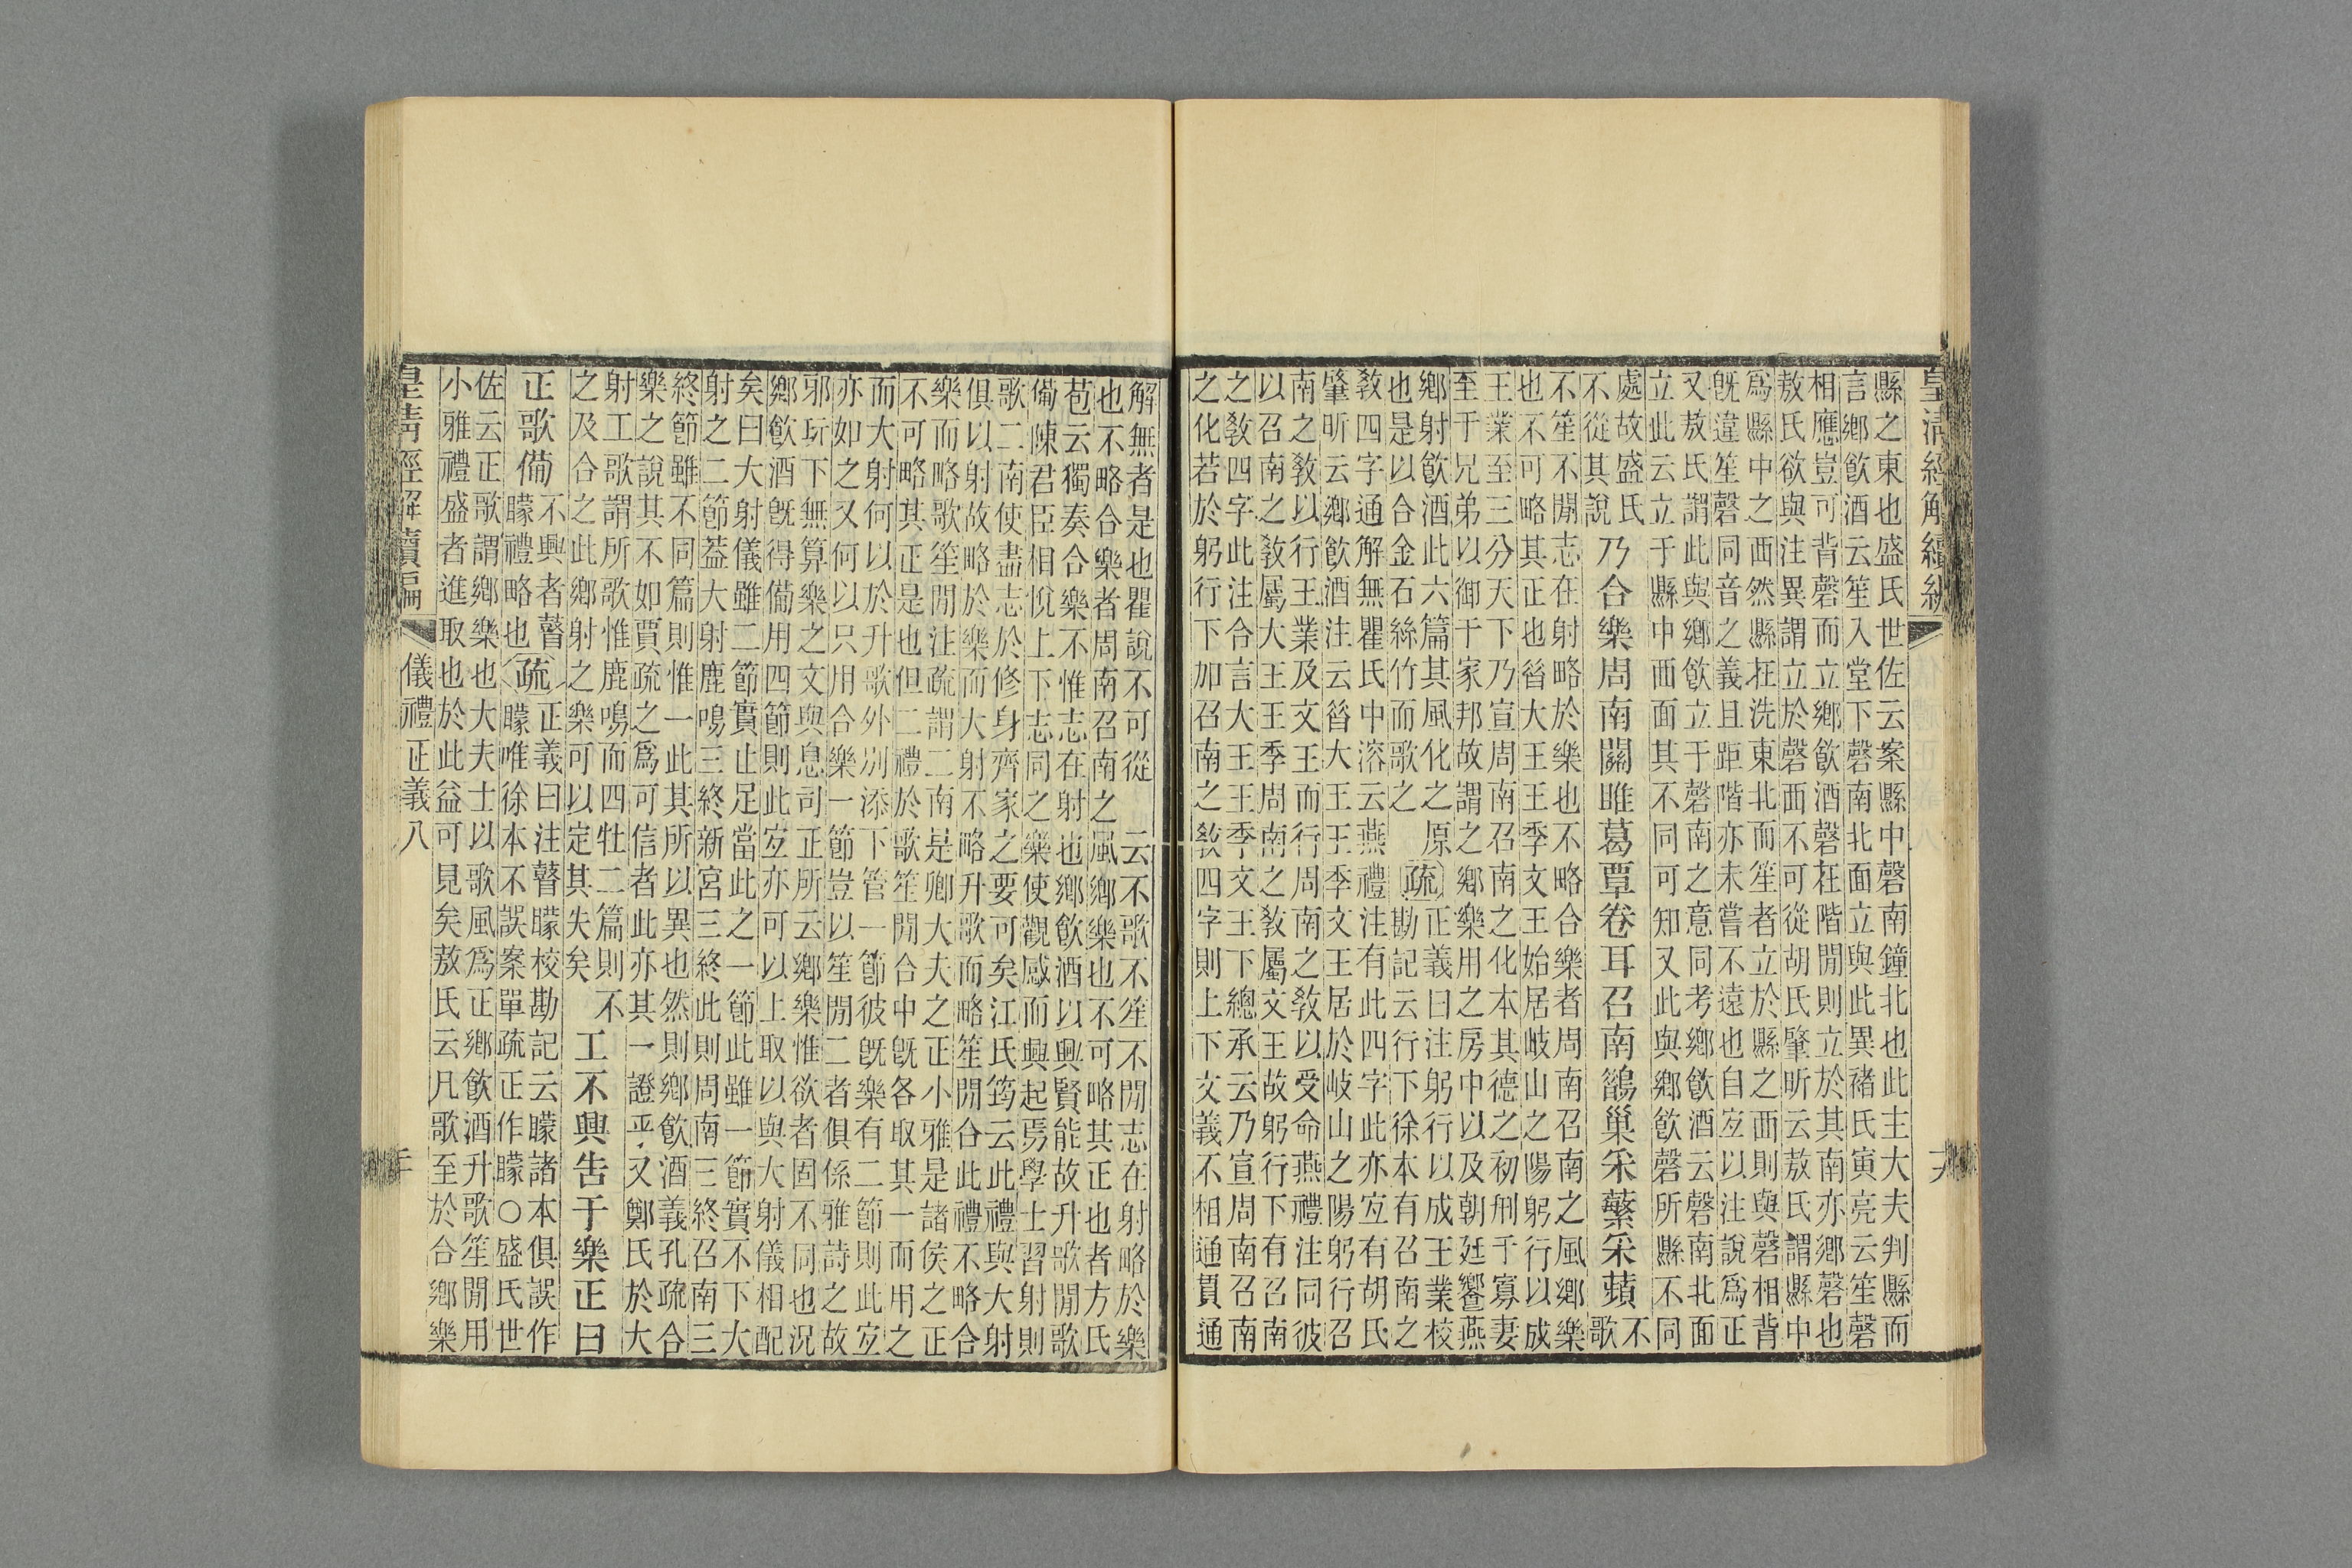 皇清經解續編
縣之東也盛氏世佐云案縣中磬南鐘北也此主大夫判縣而
言鄉飮酒云笙入堂下磬南北面立與此異褚氏寅亮云笙磬
相應豈可背磬而立鄉飮酒磬在階閒則立於其南亦鄉磬也
敖氏欲與注異謂立於磬西不可從胡氏肇昕云敖氏謂縣中
爲縣中之西然縣在洗東北而笙者立於縣之西則與磬相背
旣違笙磬同音之義且距階亦未嘗不遠也自宐以注說爲正
又敖氏謂此與鄉飮立于磬南之意同考鄉飮酒云磬南北面
立此云立于縣中西面其不同可知又此與鄉飮磬所縣不同
處故盛氏
不從其說
乃合樂周南關雎葛覃卷耳召南鵲巢采蘩采蘋
不
歌
不笙不閒志在射略於樂也不略合樂者周南召南之風鄉樂
也不可略其正也昝大王王季文王始居岐山之陽躬行以成
王業至三分天下乃宣周南召南之化本其德之初刑于寡妻
至于兄弟以御于家邦故謂之鄉樂用之房中以及朝廷饗燕
鄉射飮酒此六篇其風化之原
也是以合金石絲竹而歌之
疏
正義曰注躬行以成王業校
勘記云行下徐本有召南之
敎四字通解無瞿氏中溶云燕禮注有此四字此亦宐有胡氏
肇昕云鄉飮酒注云昝大王王季文王居於岐山之陽躬行召
南之敎以行王業及文王而行周南之敎以受命燕禮注同彼
以召南之敎屬大王王季周南之敎屬文王故躬行下有召南
之敎四字此注合言大王王季文王下總承云乃宣周南召南
之化若於躬行下加召南之敎四字則上下文義不相通貫通
解無者是也瞿說不可從 云不歌不笙不閒志在射略於樂
也不略合樂者周南召南之風鄉樂也不可略其正也者方氏
苞云獨奏合樂不惟志在射也鄉飮酒以興賢能故升歌閒歌
備陳君臣相悅上下志同之樂使觀感而興起焉學士習射則
歌二南使盡志於修身齊家之要可矣江氏筠云此禮與大射
俱以射故略於樂而大射不略升歌而略笙閒合此禮不略合
樂而略歌笙閒注疏謂二南是鄉大夫之正小雅是諸侯之正
不可略其正是也但二禮於歌笙閒合中旣各取其一而用之
而大射何以於升歌外別添下管一節彼旣樂有二節則此宐
亦如之又何以只用合樂一節豈以笙閒二者俱係雅詩之故
邪玩下無算樂之文與息司正所云鄉樂惟欲者固不同也況
鄉飮酒旣得備用四節則此宐亦可以上取以與大射儀相配
矣曰大射儀雖二節實止足當此之一節此雖一節實不下大
射之二節葢大射鹿鳴三終新宮三終此則周南三終召南三
終節雖不同篇則惟一此其所以異也然則鄉飮酒義孔疏合
樂之說其不如賈疏之爲可信者此亦其一證乎又鄭氏於大
射工歌謂所歌惟鹿鳴而四牡二篇則不
之及合之此鄉射之樂可以定其失矣
工不興告于樂正曰
正歌備
不興者瞽
矇禮略也
疏
正義曰注瞽矇校勘記云矇諸本俱誤作
矇唯徐本不誤案單疏正作矇○盛氏世
佐云正歌謂鄉樂也大夫士以歌風爲正鄉飮酒升歌笙閒用
小雅禮盛者進取也於此益可見矣敖氏云凡歌至於合鄉樂
皇清經解續編
儀禮正義八